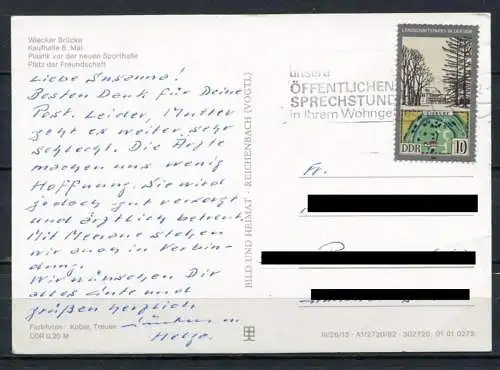 Wiecker Brücke
Kaufhalle 8. Mai
Plastik vor der neuen Sporthalle
Platz der Freundschaft
Liebe Susanne!
Besten Dank für Deine
Post. Leider, Mutter
geht es weiter sehr
schlecht. Die Ärzte
machen uns wenig
Hoffnung. Sie wird
jedoch gut versorgt
und ärztlich betreut.
Mit stehen
wir auch in Verbin-
dung.
Wir wünschen Dir
alles Gute und
grüßen herzlich
u.
Helga.
Farbfotos: Kober, Treuen
DDR 0,20 M
BILD UND HEIMAT · REICHENBACH (VOGTL)
unsere
ÖFFENTLICHEN
SPRECHSTUND
in Ihrem Wohnge
LANDSCHAFTSPARKS IN DER DDR
DDR 10
Fr.
III/26/13 · A1/2720/82 · 302720 01 01 0279